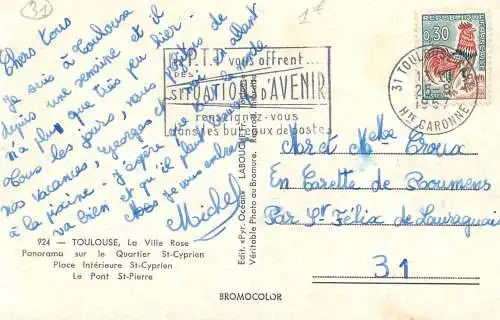 31
1€
Chers tous
Je suis à Toulouse
depuis une semaine et il
n'a plus que très peu hier.
Tous les jours, nous profitons de
nos vacances, Georges et moi en allant
à la piscine. J'espère que tout le monde
va bien et qu'il pleut
Nous je vous embrasse
Michel
924 — TOULOUSE, La Ville Rose
Panorama sur le Quartier St-Cyprien
Place Intérieure St-Cyprien
Le Pont St-Pierre
Edit. «Pyr. Océan» LABOUCHE
Véritable Photo au Bromure.
BROMOCOLOR
LES P.T.T. vous offrent
DES
SITUATIONS D'AVENIR
renseignez-vous
dans les bureaux de postes
31 TOULOUSE
1967
Hte GARONNE
REPUBLIQUE FRANÇAISE
0,30
POSTES
M et Mme Croux
en Roumens
Par St Félix de Lauraguais
31